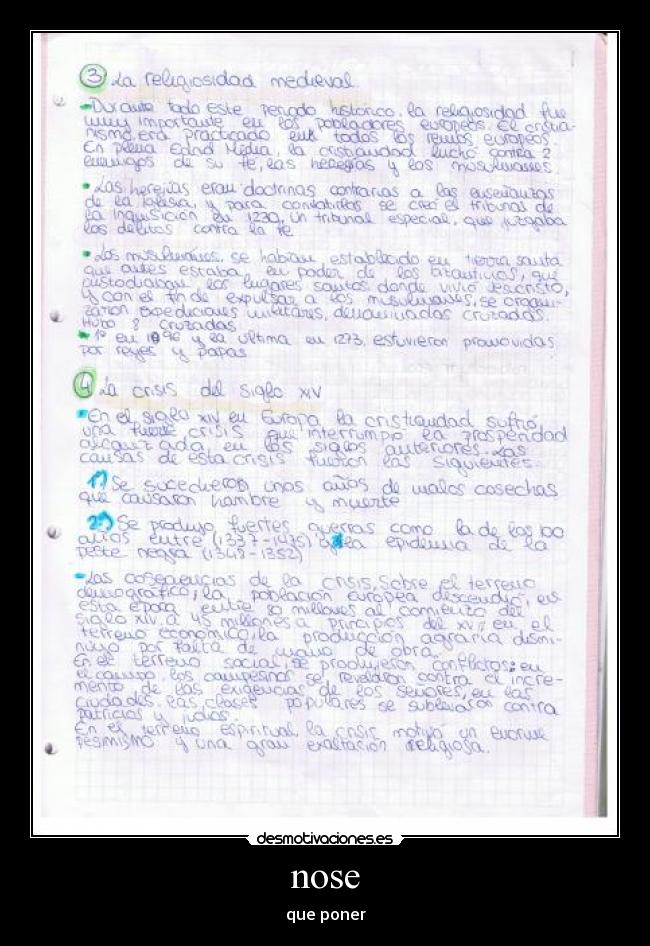 3 La religiosidad medieval
Durante todo este periodo histórico, la religiosidad fue
muy importante en los pobladores europeos. El cristia-
nismo era practicado en todos los reinos europeos.
En plena Edad Media, la cristiandad luchó contra 2
enemigos de su fe, las herejías y los musulmanes.
Las herejías eran doctrinas contrarias a las enseñanzas
de la Iglesia, y para combatirlos se creó el tribunas de
la Inquisición en 1230, un tribunal especial, que juzgaba
los delitos contra la fe
Los musulmanes, se habían establecido en tierra santa
que antes estaba en poder de los bizantinos, que
custodiaban los lugares santos donde vivió Jesucristo,
y con el fin de expulsar a los musulmanes, se organi-
zaron expediciones militares, denominadas cruzadas.
Hubo 8 cruzadas
1º en 1096 y la ultima en 1273, estuvieron promovidas
por reyes y papas
4 La crisis del siglo XIV
En el siglo XIV en Europa la cristiandad sufrió
una fuerte crisis que interrumpió la prosperidad
alcanzada en los siglos anteriores. Las
causas de esta crisis fueron las siguientes
1) Se sucedieron unos años de malos cosechas
que causaron hambre y muerte
2) Se produjo fuertes guerras como la de los 100
años entre (1337-1475) la epidemia de la
peste negra (1348-1352)
Las consecuencias de la crisis, sobre el terreno
demográfico, la población europea descendió, en
esta época entre 80 millones al comienzo del
siglo XIV a 45 millones a principios del XV, en el
terreno económico, la producción agraria dismi-
nuyó por falta de mano de obra
En el terreno social, se produjeron conflictos: en
el campo, los campesinos se revelaron contra el incre-
mento de las exigencias de los señores, en las
ciudades, las clases populares se sublevaron contra
patricios y judíos.
En el terreno espiritual, la crisis motivó un enorme
pesimismo y una gran exaltación religiosa.
desmotivaciones.es
nose
que poner